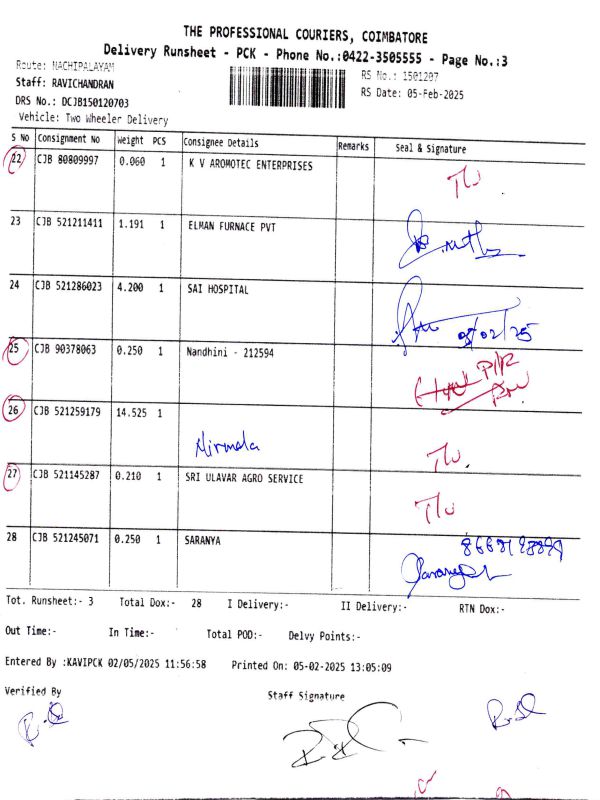 THE PROFESSIONAL COURIERS, COIMBATORE
Delivery Runsheet - PCK - Phone No.:0422-3505555 - Page No.:3
Route: NACHIPALAYAM
RS No.: 1501207
Staff: RAVICHANDRAN
RS Date: 05-Feb-2025
DRS No.: DCJB150120703
Vehicle: Two Wheeler Delivery
S No Consignment No Weight PCS Consignee Details Remarks Seal & Signature
22 CJB 80809997 0.060 1 K V AROMOTEC ENTERPRISES
23 CJB 521211411 1.191 1 ELMAN FURNACE PVT
24 CJB 521286023 4.200 1 SAI HOSPITAL
05/02/25
25 CJB 90378063 0.250 1 Nandhini - 212594
26 CJB 521259179 14.525 1
Nirmala
27 CJB 521145287 0.210 1 SRI ULAVAR AGRO SERVICE
28 CJB 521245071 0.250 1 SARANYA
Tot. Runsheet:- 3 Total Dox:- 28 I Delivery:- II Delivery:- RTN Dox:-
Out Time:- In Time:- Total POD:- Delvy Points:-
Entered By :KAVIPCK 02/05/2025 11:56:58 Printed On: 05-02-2025 13:05:09
Verified By Staff Signature